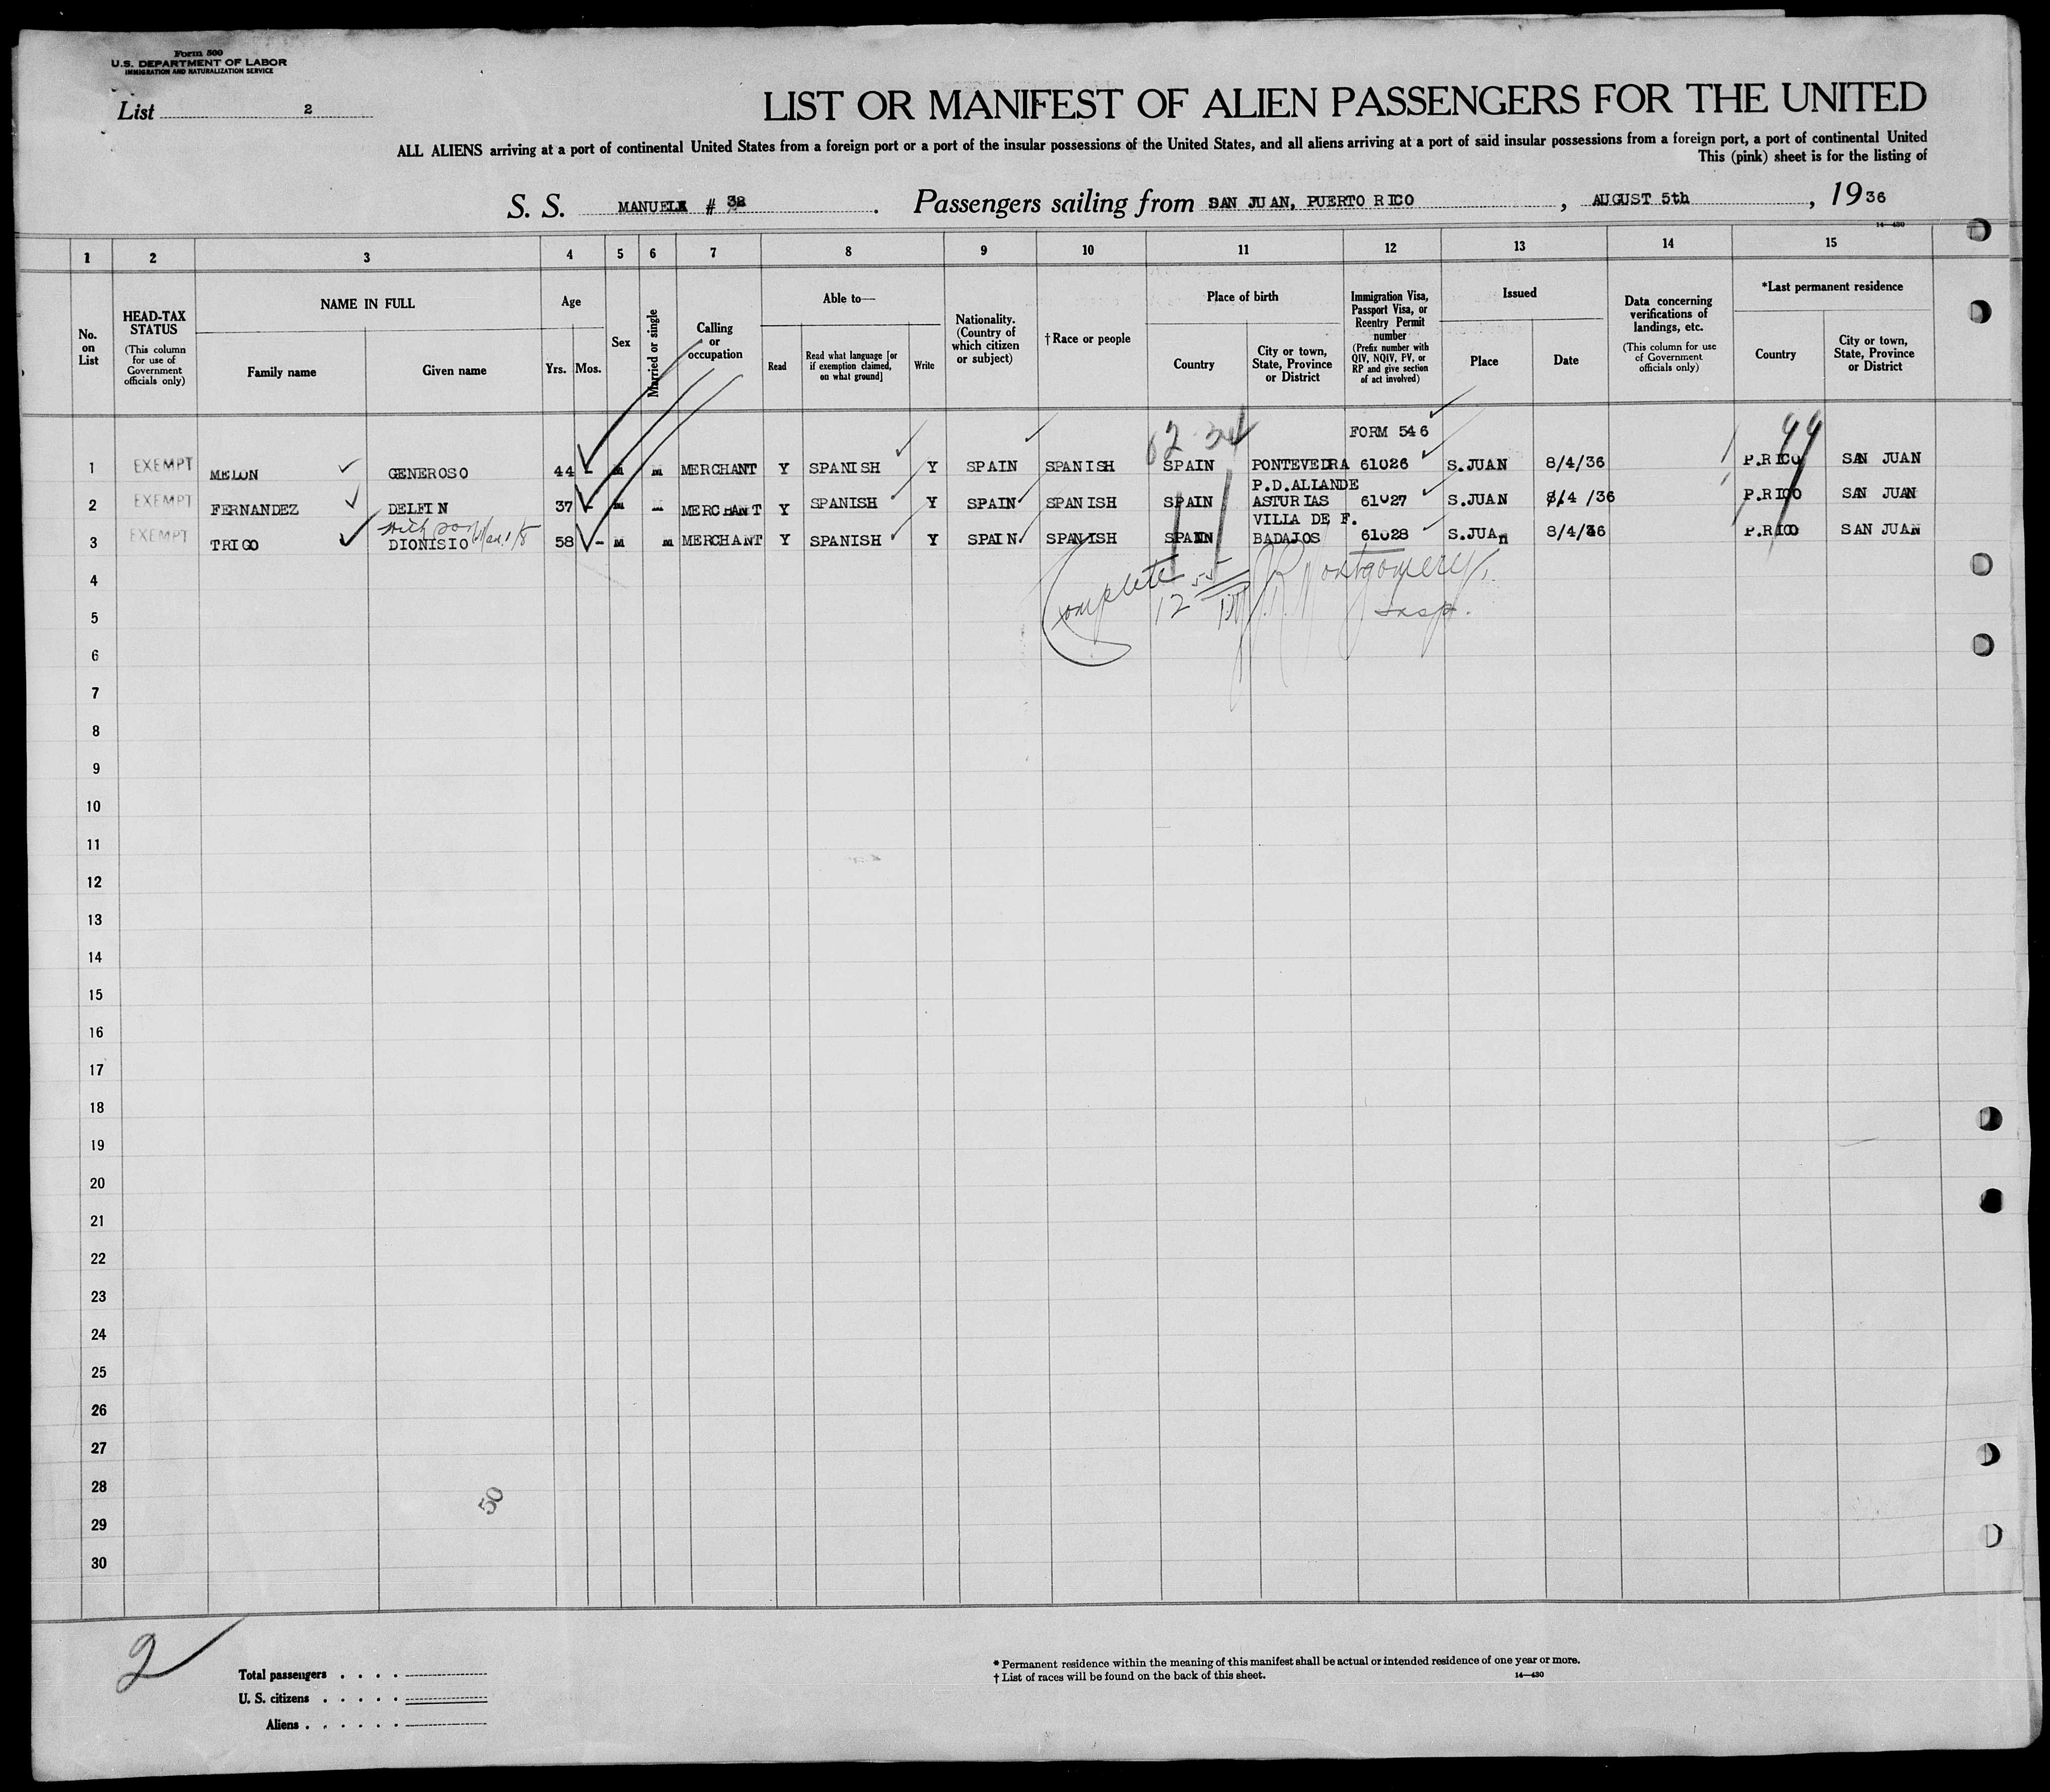 Form 500
U.S. DEPARTMENT OF LABOR
IMMIGRATION AND NATURALIZATION SERVICE
List 2
LIST OR MANIFEST OF ALIEN PASSENGERS FOR THE UNITED
ALL ALIENS arriving at a port of continental United States from a foreign port or a port of the insular possessions of the United States, and all aliens arriving at a port of said insular possessions from a foreign port, a port of continental United
This (pink) sheet is for the listing of
S. S. MANUELA # 38. Passengers sailing from SAN JUAN, PUERTO RICO, AUGUST 5th, 1936
14—430
1 2 3 4 5 6 7 8 9 10 11 12 13 14 15
No. on List
HEAD-TAX STATUS
(This column for use of Government officials only)
NAME IN FULL
Family name
Given name
Age
Yrs. Mos.
Sex
Married or single
Calling or occupation
Able to—
Read
Read what language [or if exemption claimed, on what ground]
Write
Nationality. (Country of which citizen or subject)
†Race or people
Place of birth
Country
City or town, State, Province or District
Immigration Visa, Passport Visa, or Reentry Permit number
(Prefix number with QIV, NQIV, PV, or RP and give section of act involved)
Issued
Place
Date
Data concerning verifications of landings, etc.
(This column for use of Government officials only)
*Last permanent residence
Country
City or town, State, Province or District
62-34
FORM 546
99
1 EXEMPT MELON GENEROSO 44 - M M MERCHANT Y SPANISH Y SPAIN SPANISH SPAIN PONTEVEDRA 61026 S.JUAN 8/4/36 P.RICO SAN JUAN
2 EXEMPT FERNANDEZ DELFIN 37 - M M MERCHANT Y SPANISH Y SPAIN SPANISH SPAIN P.D.ALLANDE ASTURIAS 61027 S.JUAN 8/4/36 P.RICO SAN JUAN
3 EXEMPT TRIGO DIONISIO 58 - M M MERCHANT Y SPANISH Y SPAIN SPANISH SPAIN VILLA DE F. BADAJOS 61028 S.JUAN 8/4/36 P.RICO SAN JUAN
Complete 12 55 PM J.R. Montgomery, Insp.
4
5
6
7
8
9
10
11
12
13
14
15
16
17
18
19
20
21
22
23
24
25
26
27
28
29
30
50
2
Total passengers
U. S. citizens
Aliens
* Permanent residence within the meaning of this manifest shall be actual or intended residence of one year or more.
† List of races will be found on the back of this sheet.
14—430